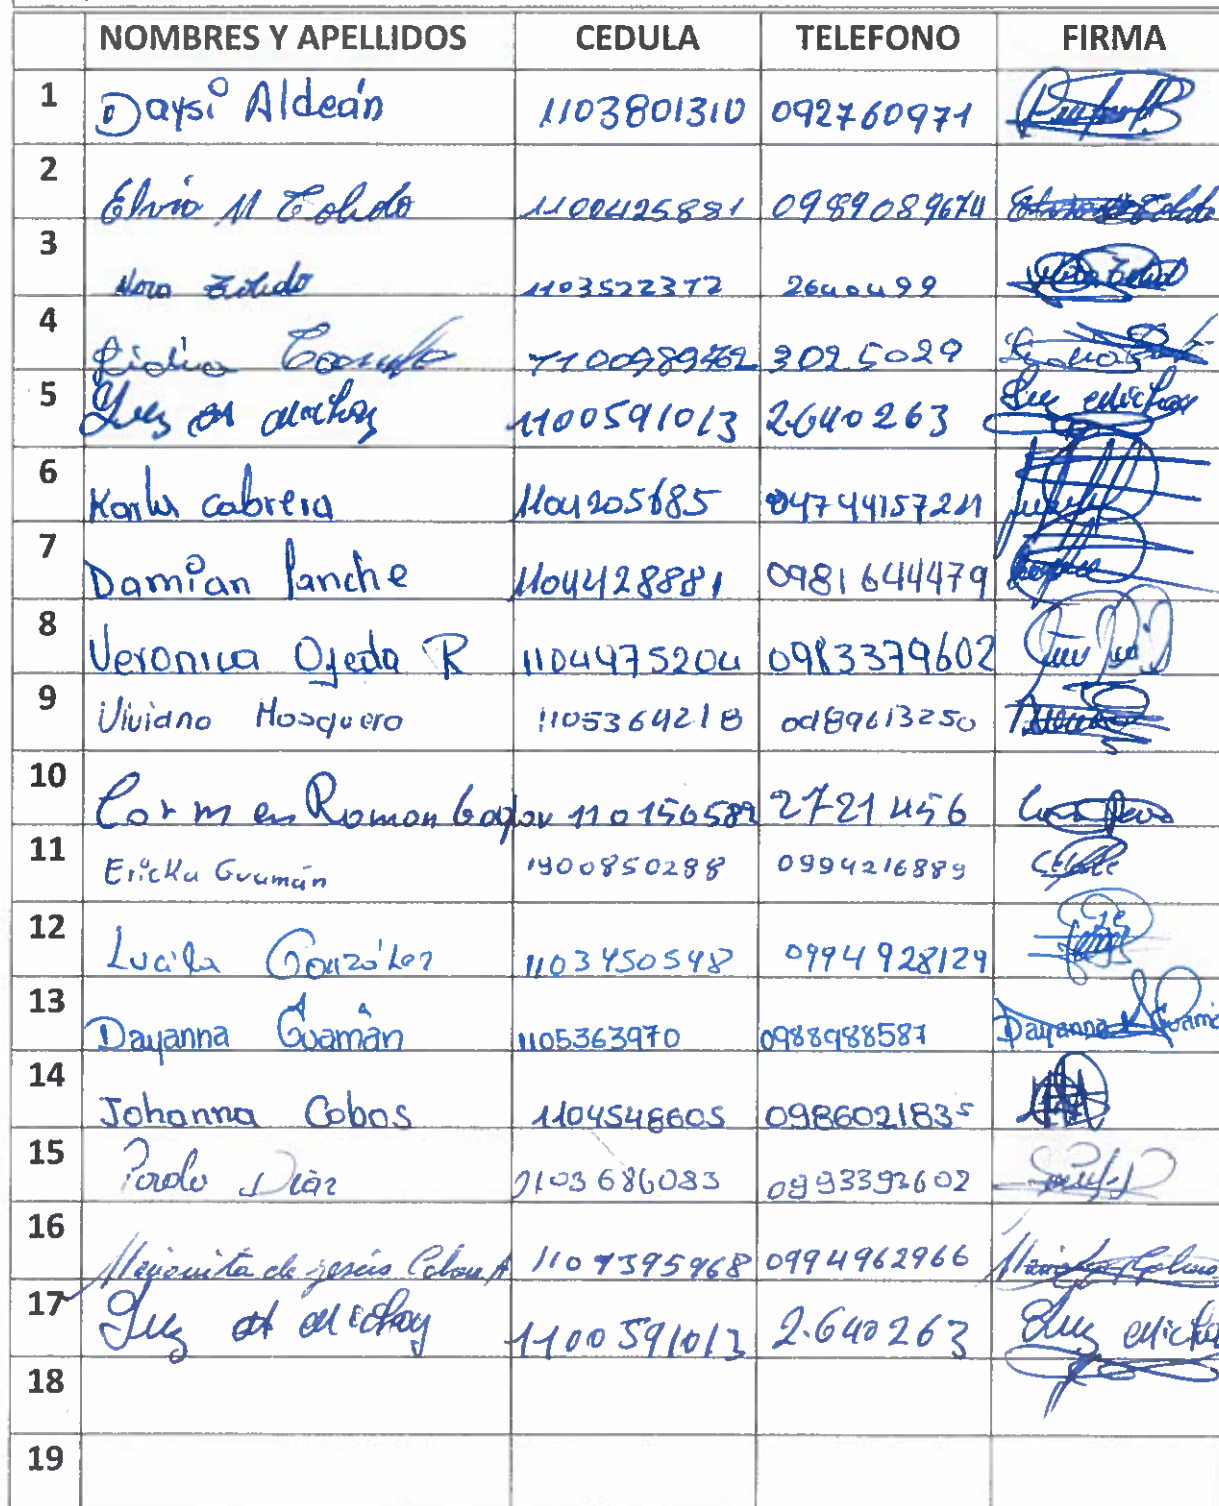 NOMBRES Y APELLIDOS CEDULA TELEFONO FIRMA
1 Daysi Aldeán 1103801310 092760971
2 Elvio M Toledo 1100425881 0989089674
3 Nora Toledo 1103522372 2640499
4 Lidia 1100989762 3025029
5 Luz 1100591013 2640263
6 Karla Cabrera 1104205685
7 Damian Panche 1104428881 0981644479
8 Veronica Ojeda R 1104475204 0983379602
9 Viviana Mosquera 1105364218 0989613250
10 Carmen Roman 1101565 2721456
11 Ericka Guamán 1900850288 0994216889
12 Lucila González 1103450548 0994928129
13 Dayanna Guamán 1105363970 0988988587 Dayanna Guamá
14 Johanna Cobos 1104548605 0986021835
15 Díaz 1103686083 0993392602
16 de jesús 0994962966
17 Luz 1100591013 2.640263 Luz
18
19